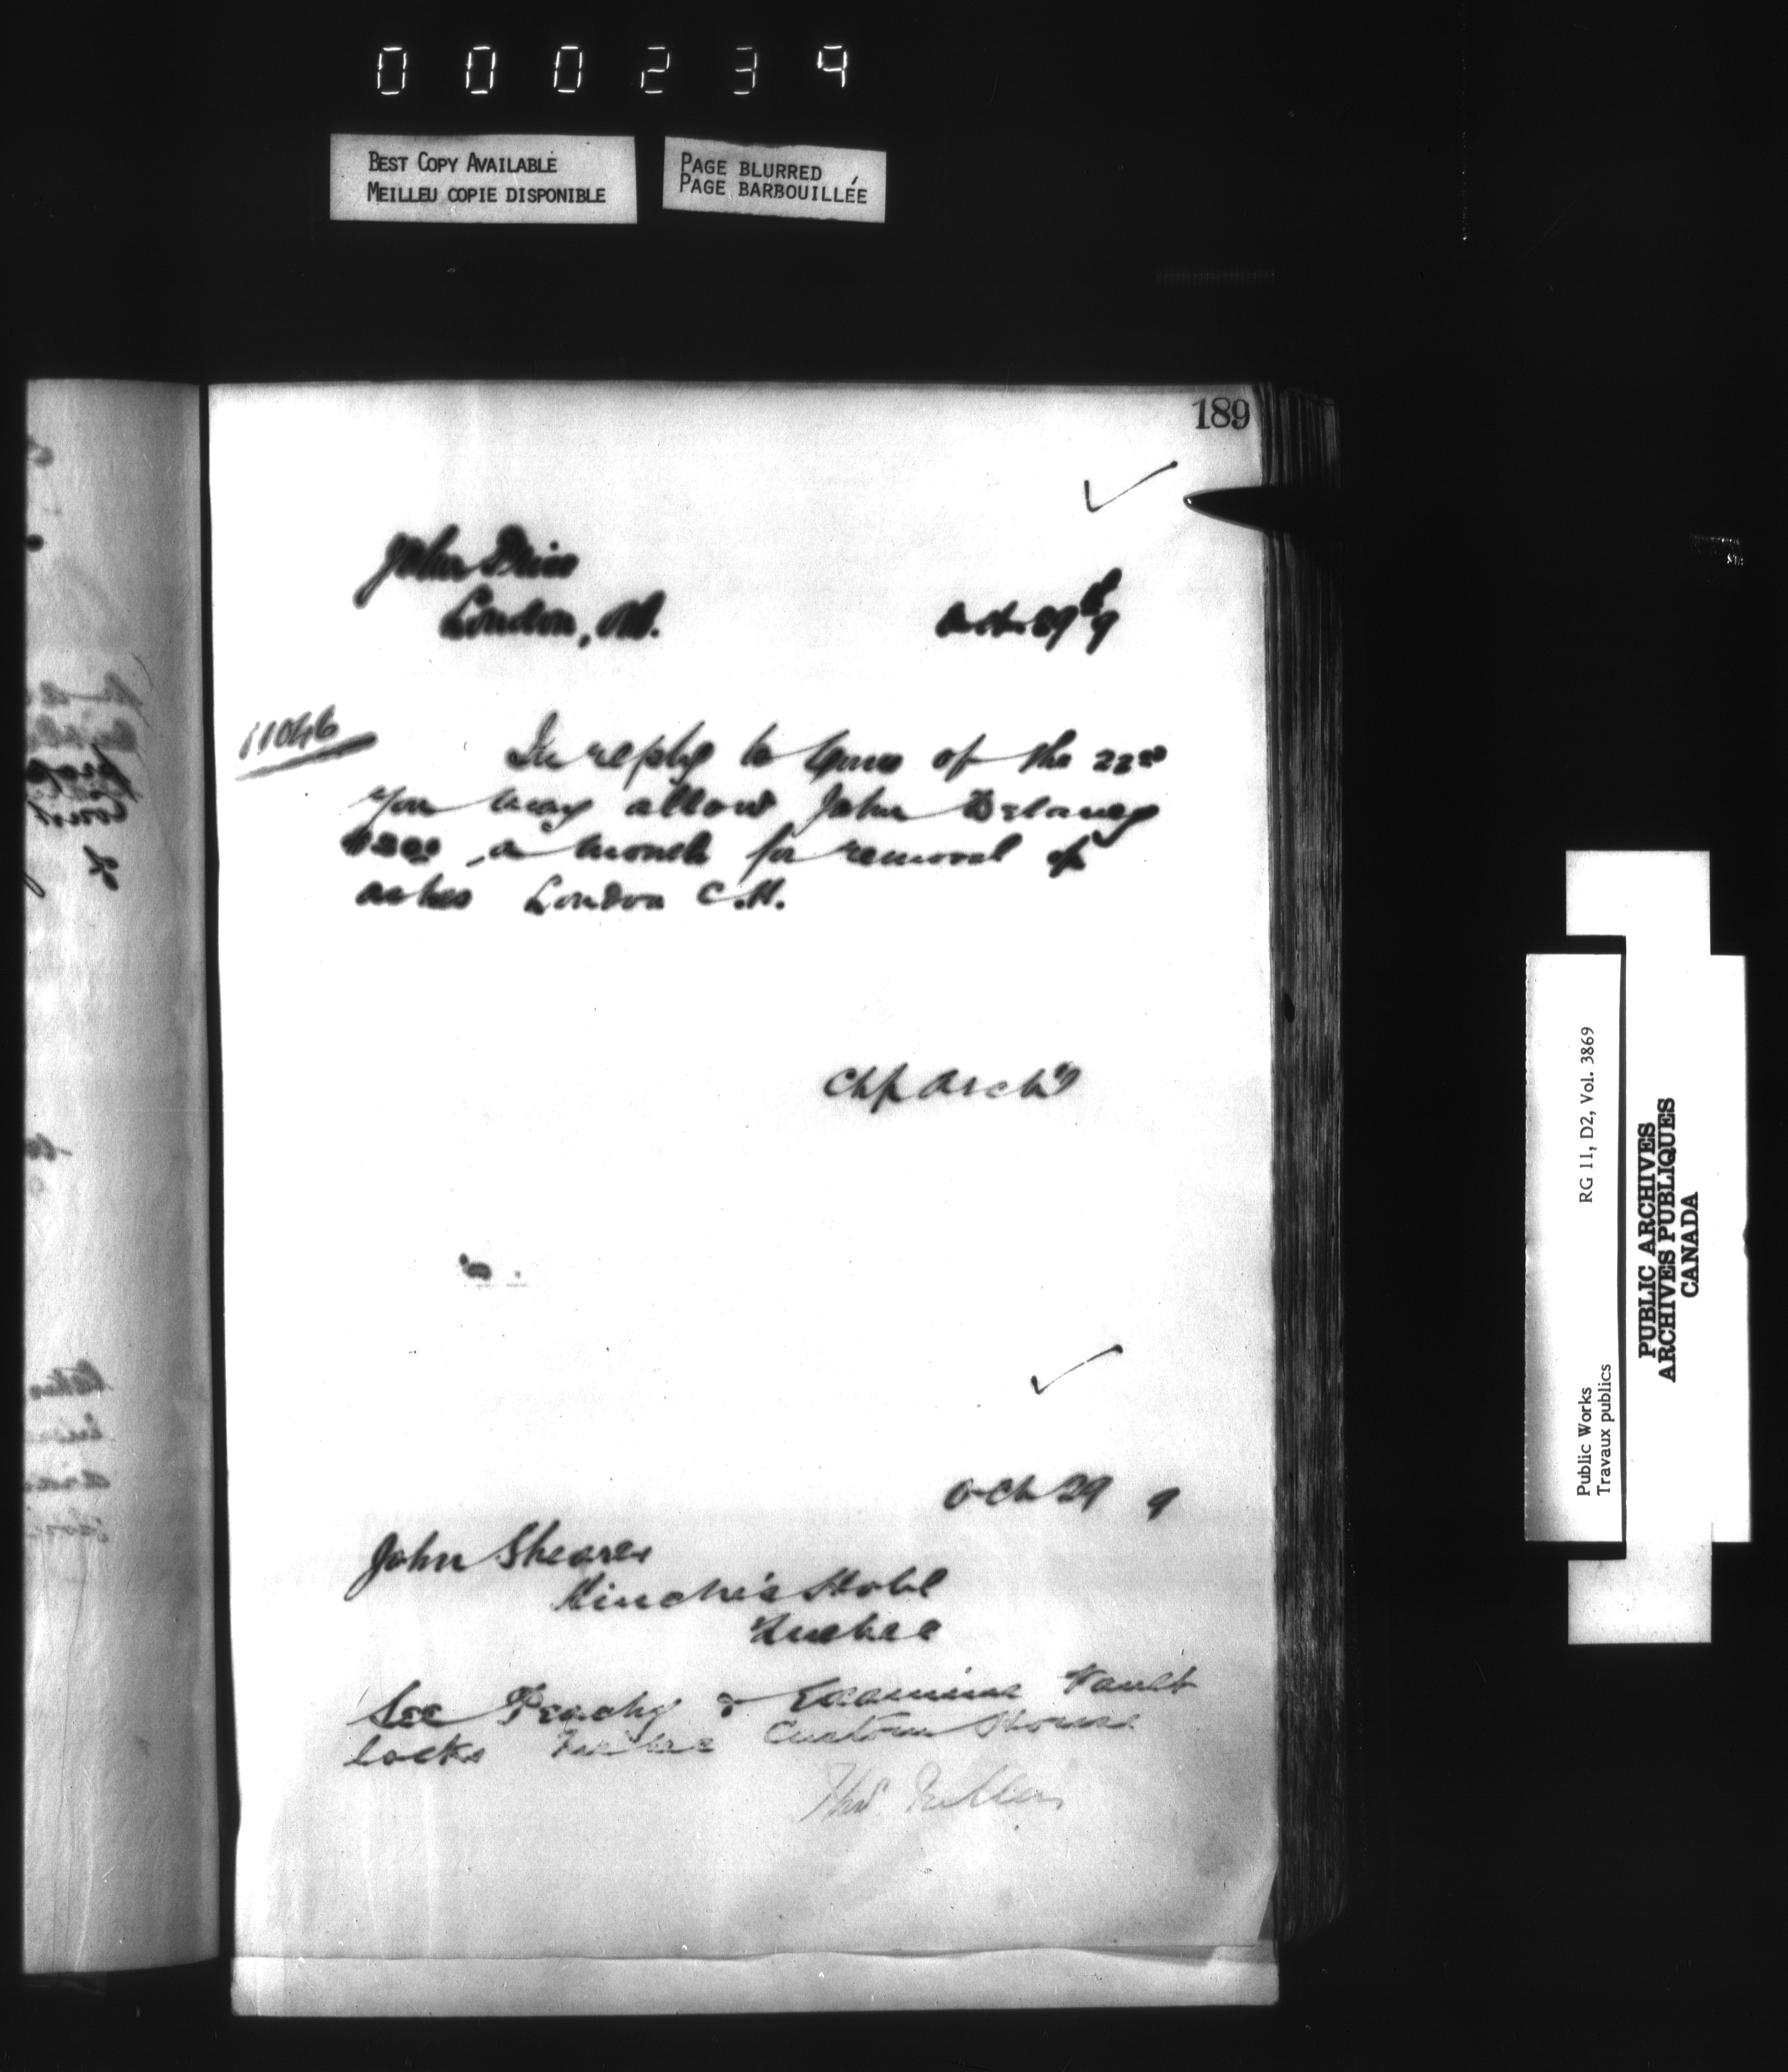 000239
BEST COPY AVAILABLE
MEILLEU COPIE DISPONIBLE
PAGE BLURRED
PAGE BARBOUILLÉE
189
John
London, Ont.
Oct. 29th 9
11046
In reply to yours of the 22nd
you may allow John Delaney
a month for removal of
ashes London C.H.
Chf Archt
Oct 29 9
John Shearer
Hotel
Quebec
See Peachy & Examine Vault
locks Quebec Custom House
RG 11, D2, Vol. 3869
Public Works
Travaux publics
PUBLIC ARCHIVES
ARCHIVES PUBLIQUES
CANADA